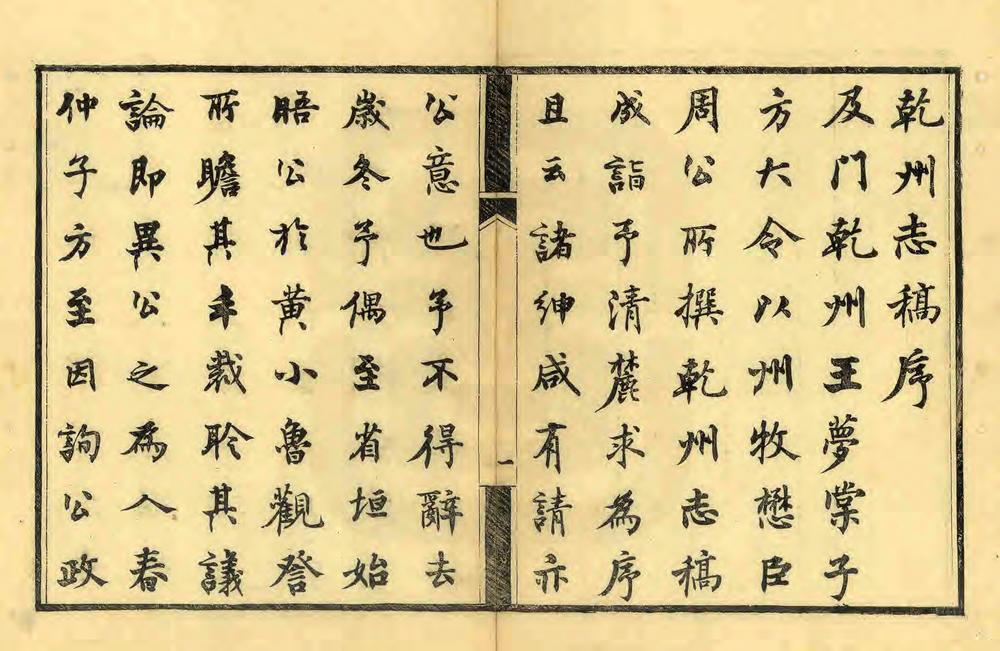 乾州志稿序
及門乾州王夢棠子
方大令以州牧懋臣
周公所撰乾州志稿
成詣予清麓求為序
且云諸紳咸有請亦
一
公意也予不得辭去
歲冬予偶至省垣始
晤公於黃小魯觀詧
所瞻其丰裁聆其議
論即異公之為人春
仲子方至因詢公政